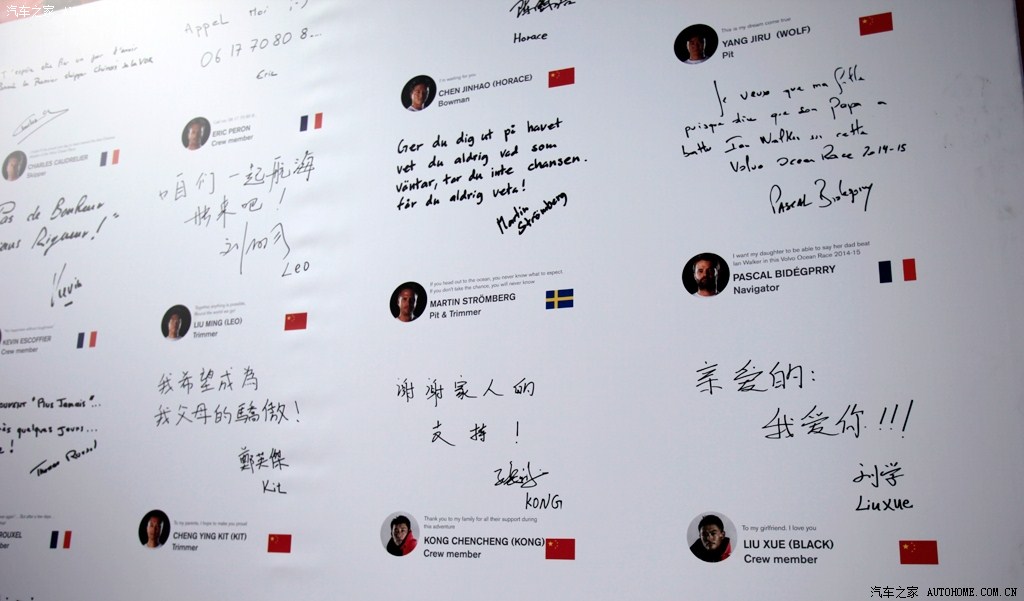 汽车之家
Appel Moi :)
06 17 70 80 8...
Eric
Horace
ERIC PERON
Crew member
CHARLES CAUDRELIER
Skipper
I'm waiting for you
CHEN JINHAO (HORACE)
Bowman
This is my dream come true
YANG JIRU (WOLF)
Pit
Pas de Bonheur
Rigueur!
Kevin
KEVIN ESCOFFIER
Crew member
咱们一起航海
吧!
Leo
LIU MING (LEO)
Trimmer
Ger du dig ut på havet
vet du aldrig vad som
väntar, tar du inte chansen.
får du aldrig veta!
Martin
Strömberg
If you head out to the ocean, you never know what to expect.
If you don't take the chance, you will never know
MARTIN STRÖMBERG
Pit & Trimmer
Je veux que ma fille
puisse dire que son Papa a
battu Ian Walker sur cette
Volvo Ocean Race 2014-15
Pascal Bidégorry
I want my daughter to be able to say her dad beat
Ian Walker in this Volvo Ocean Race 2014-15
PASCAL BIDÉGPRRY
Navigator
"Plus Jamais"...
quelques jours...
ROUXEL
我希望成為
我父母的驕傲!
鄭英傑
Kit
To my parents, I hope to make you proud
CHENG YING KIT (KIT)
Trimmer
谢谢家人的
支持!
KONG
Thank you to my family for all their support during
this adventure
KONG CHENCHENG (KONG)
Crew member
亲爱的:
我爱你!!!
刘学
Liu xue
To my girlfriend, I love you
LIU XUE (BLACK)
Crew member
汽车之家 AUTOHOME.COM.CN